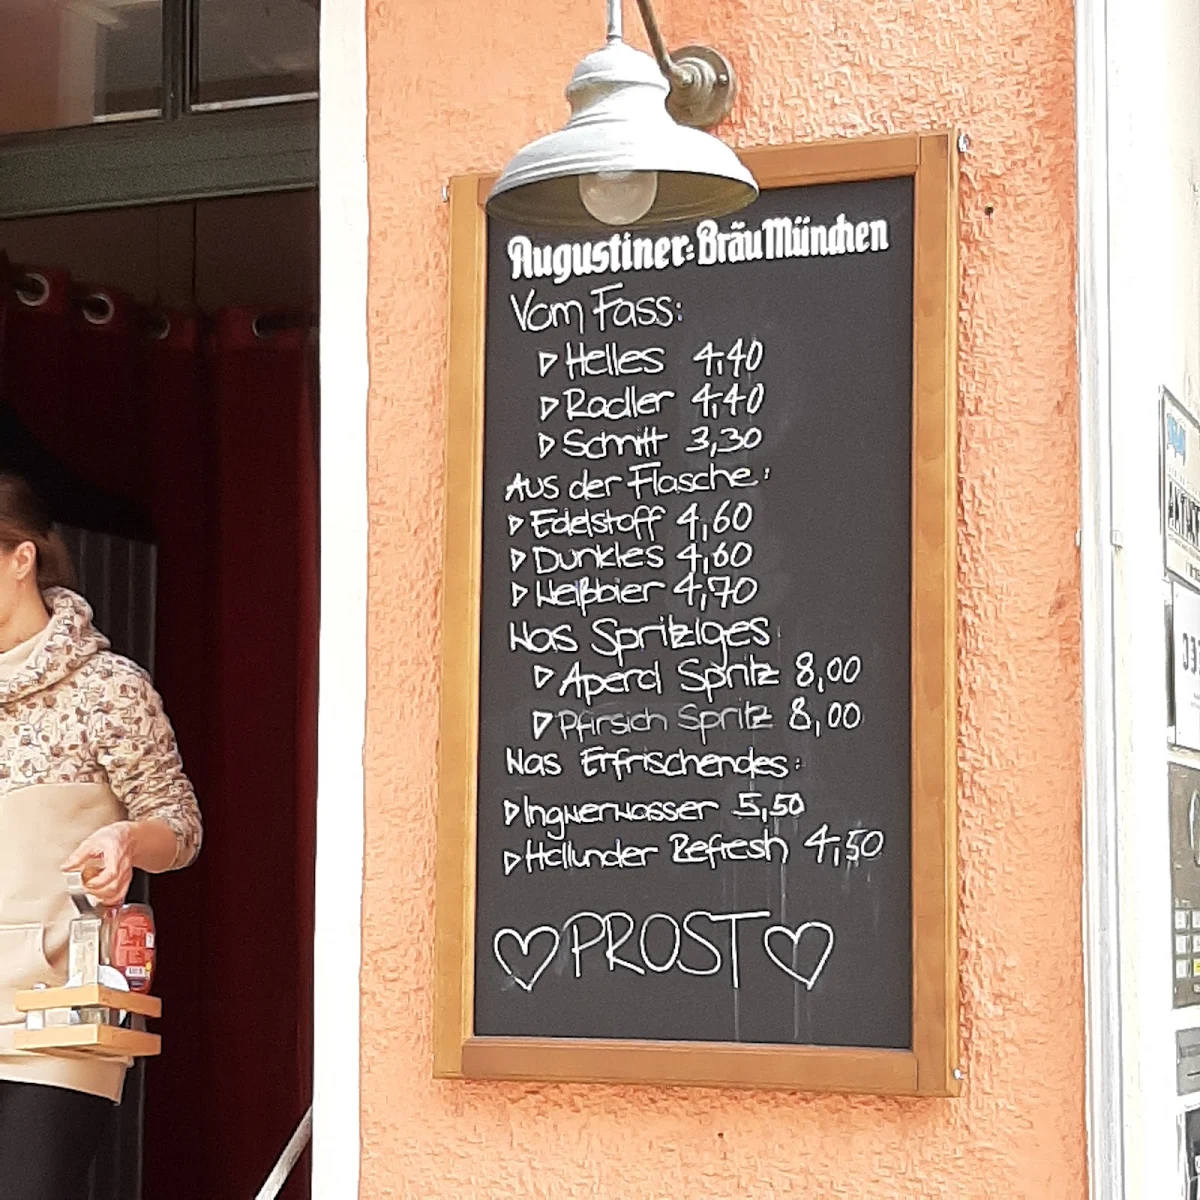 Augustiner=Bräu München
Vom Fass:
▷ Helles 4,40
▷ Radler 4,40
▷ Schnitt 3,30
Aus der Flasche:
▷ Edelstoff 4,60
▷ Dunkles 4,60
▷ Weißbier 4,70
Was Spritziges:
▷ Aperol Spritz 8,00
▷ Pfirsich Spritz 8,00
Was Erfrischendes:
▷ Ingwerwasser 5,50
▷ Hollunder Refresh 4,50
♡ PROST ♡